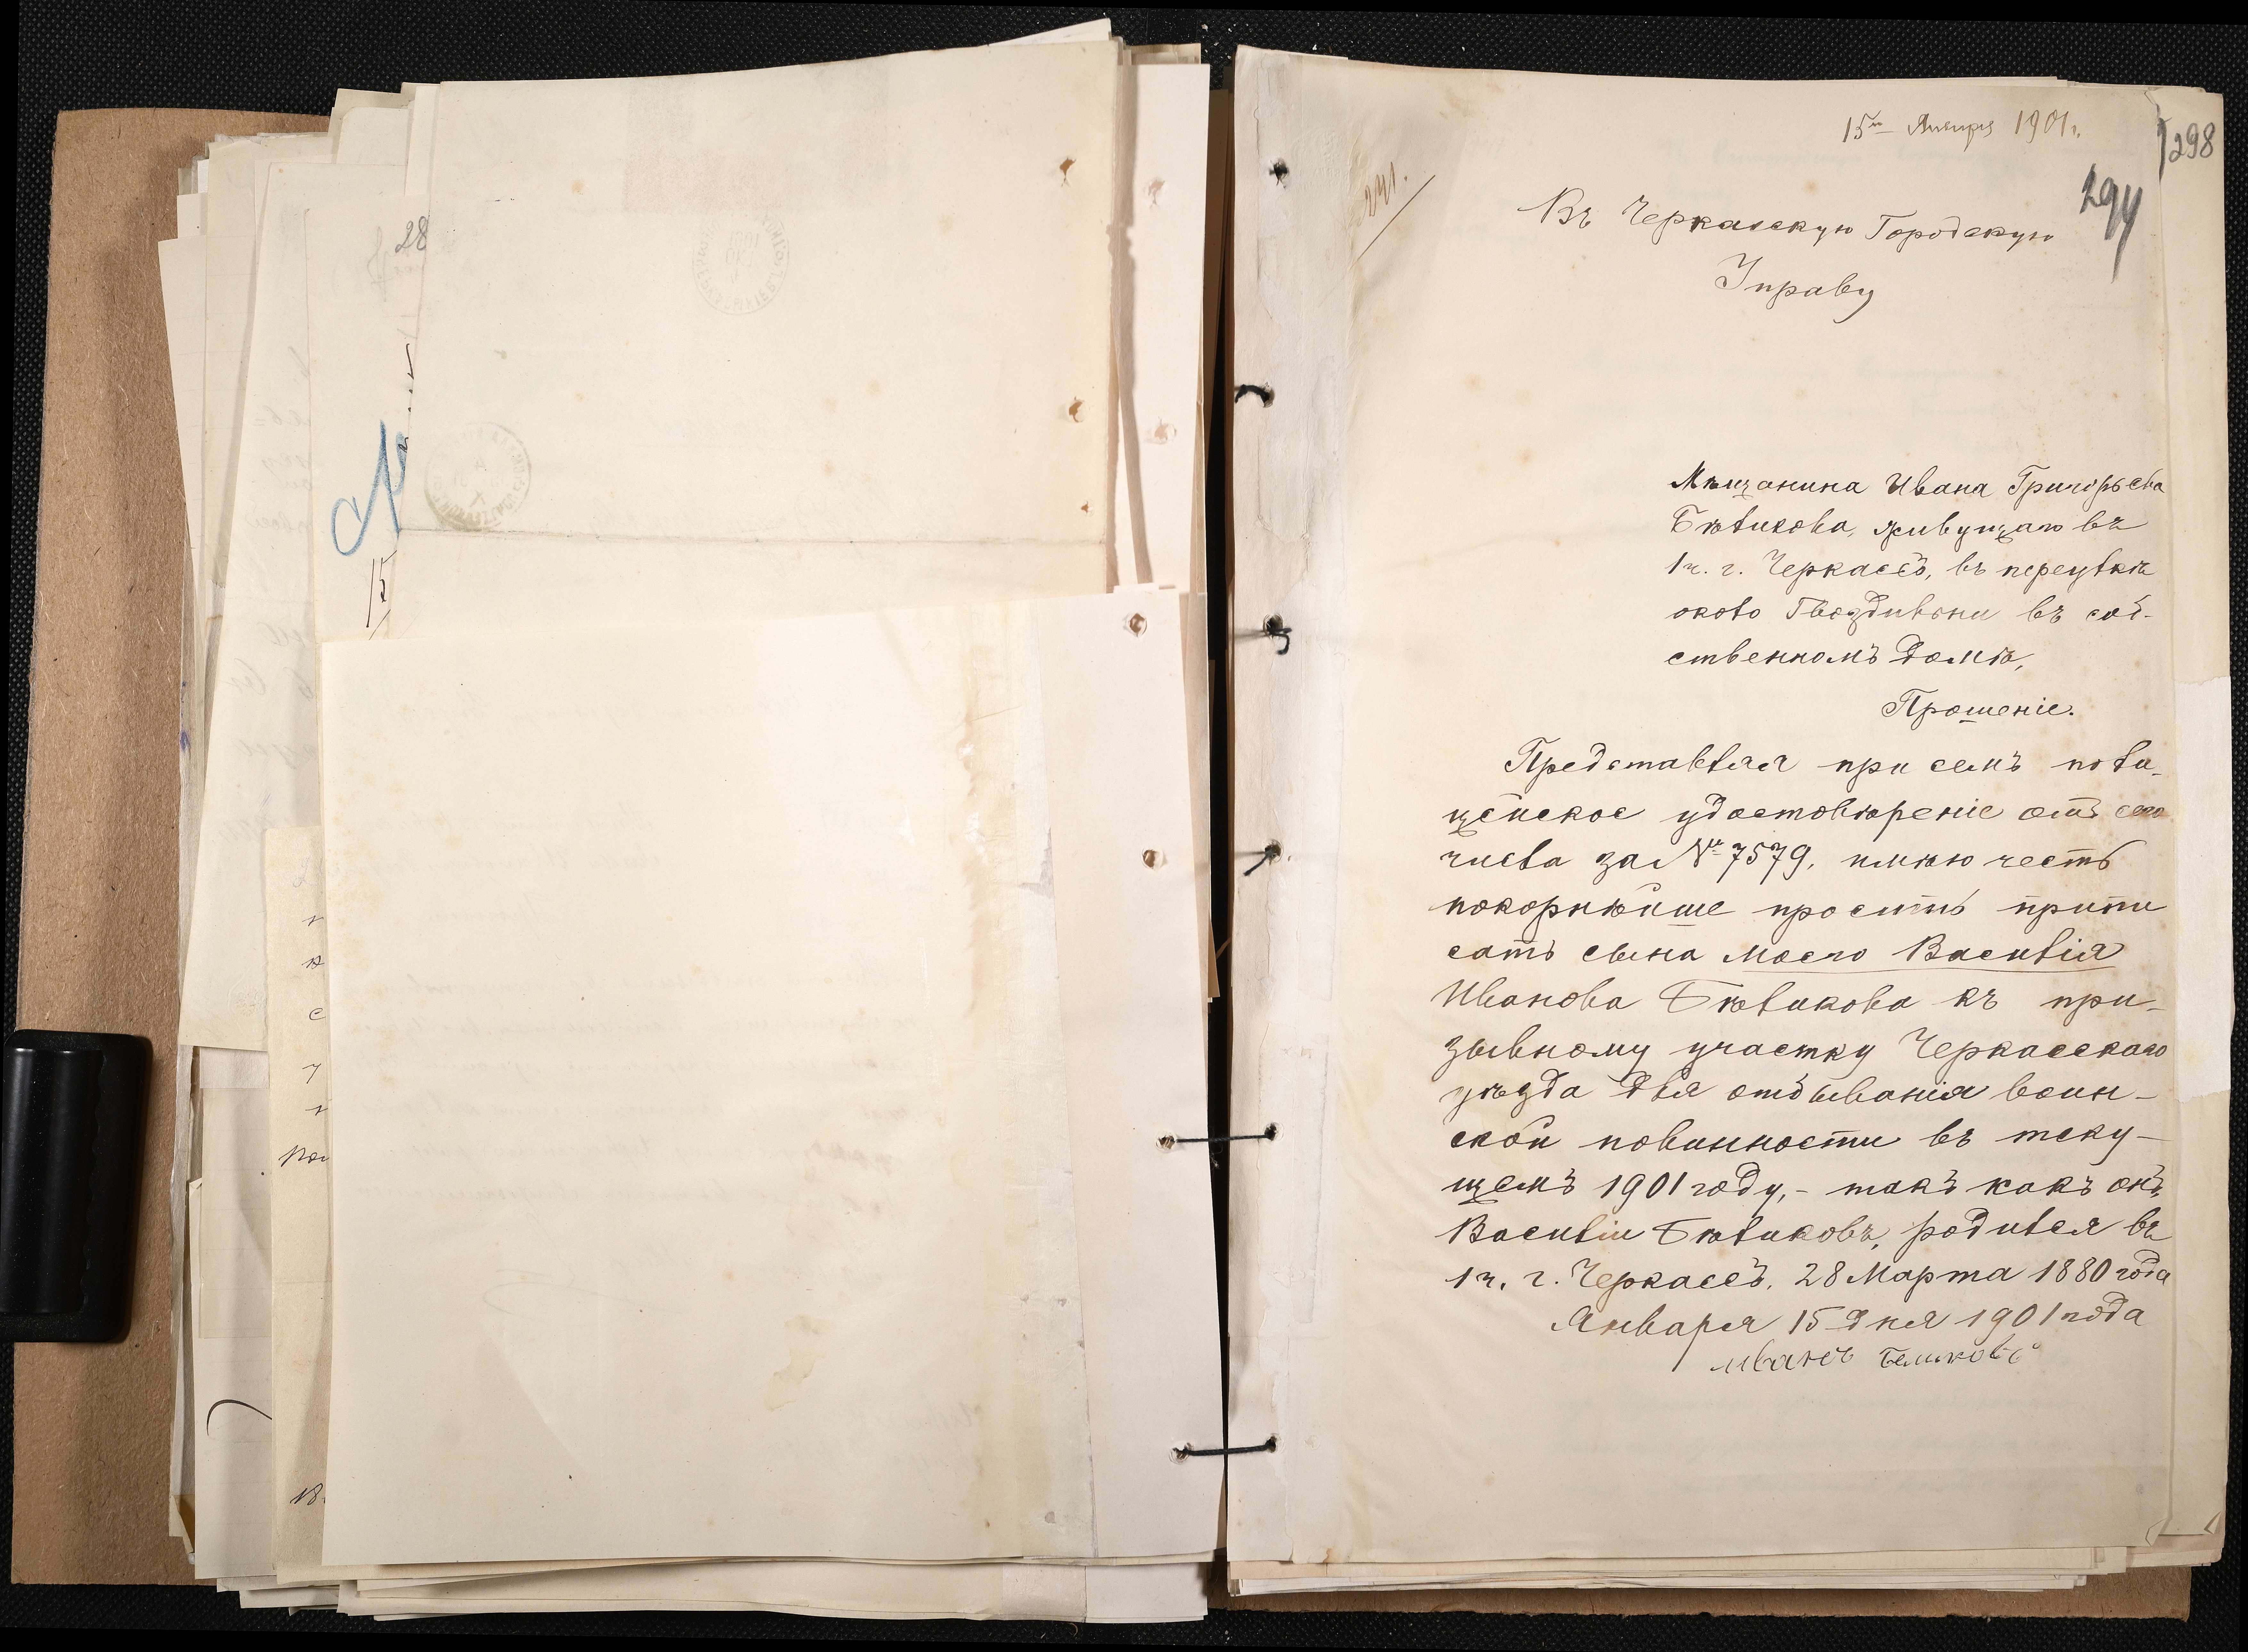 28
15
15го Января 1901 г.
298
294
241.
Въ Черкасскую Городскую
Управу
Мѣщанина Ивана Григорьева
Бѣликова, живущаго въ
1 ч. г. Черкассъ, въ переулкѣ
около Гвоздильни въ соб-
ственномъ домѣ,
Прошеніе.
Представляя при семъ поли-
цейское удостовѣреніе отъ сего
числа за № 7579, имѣю честь
покорнѣйше просить припи
сать сына моего Василія
Иванова Бѣликова къ при-
зывному участку Черкасскаго
уѣзда для отбыванія воин-
ской повинности въ теку-
щемъ 1901 году, - такъ какъ онъ,
Василій Бѣликовъ, родился въ
1 ч. г. Черкассъ, 28 Марта 1880 года
Января 15 дня 1901 года
Иванъ Беликовъ